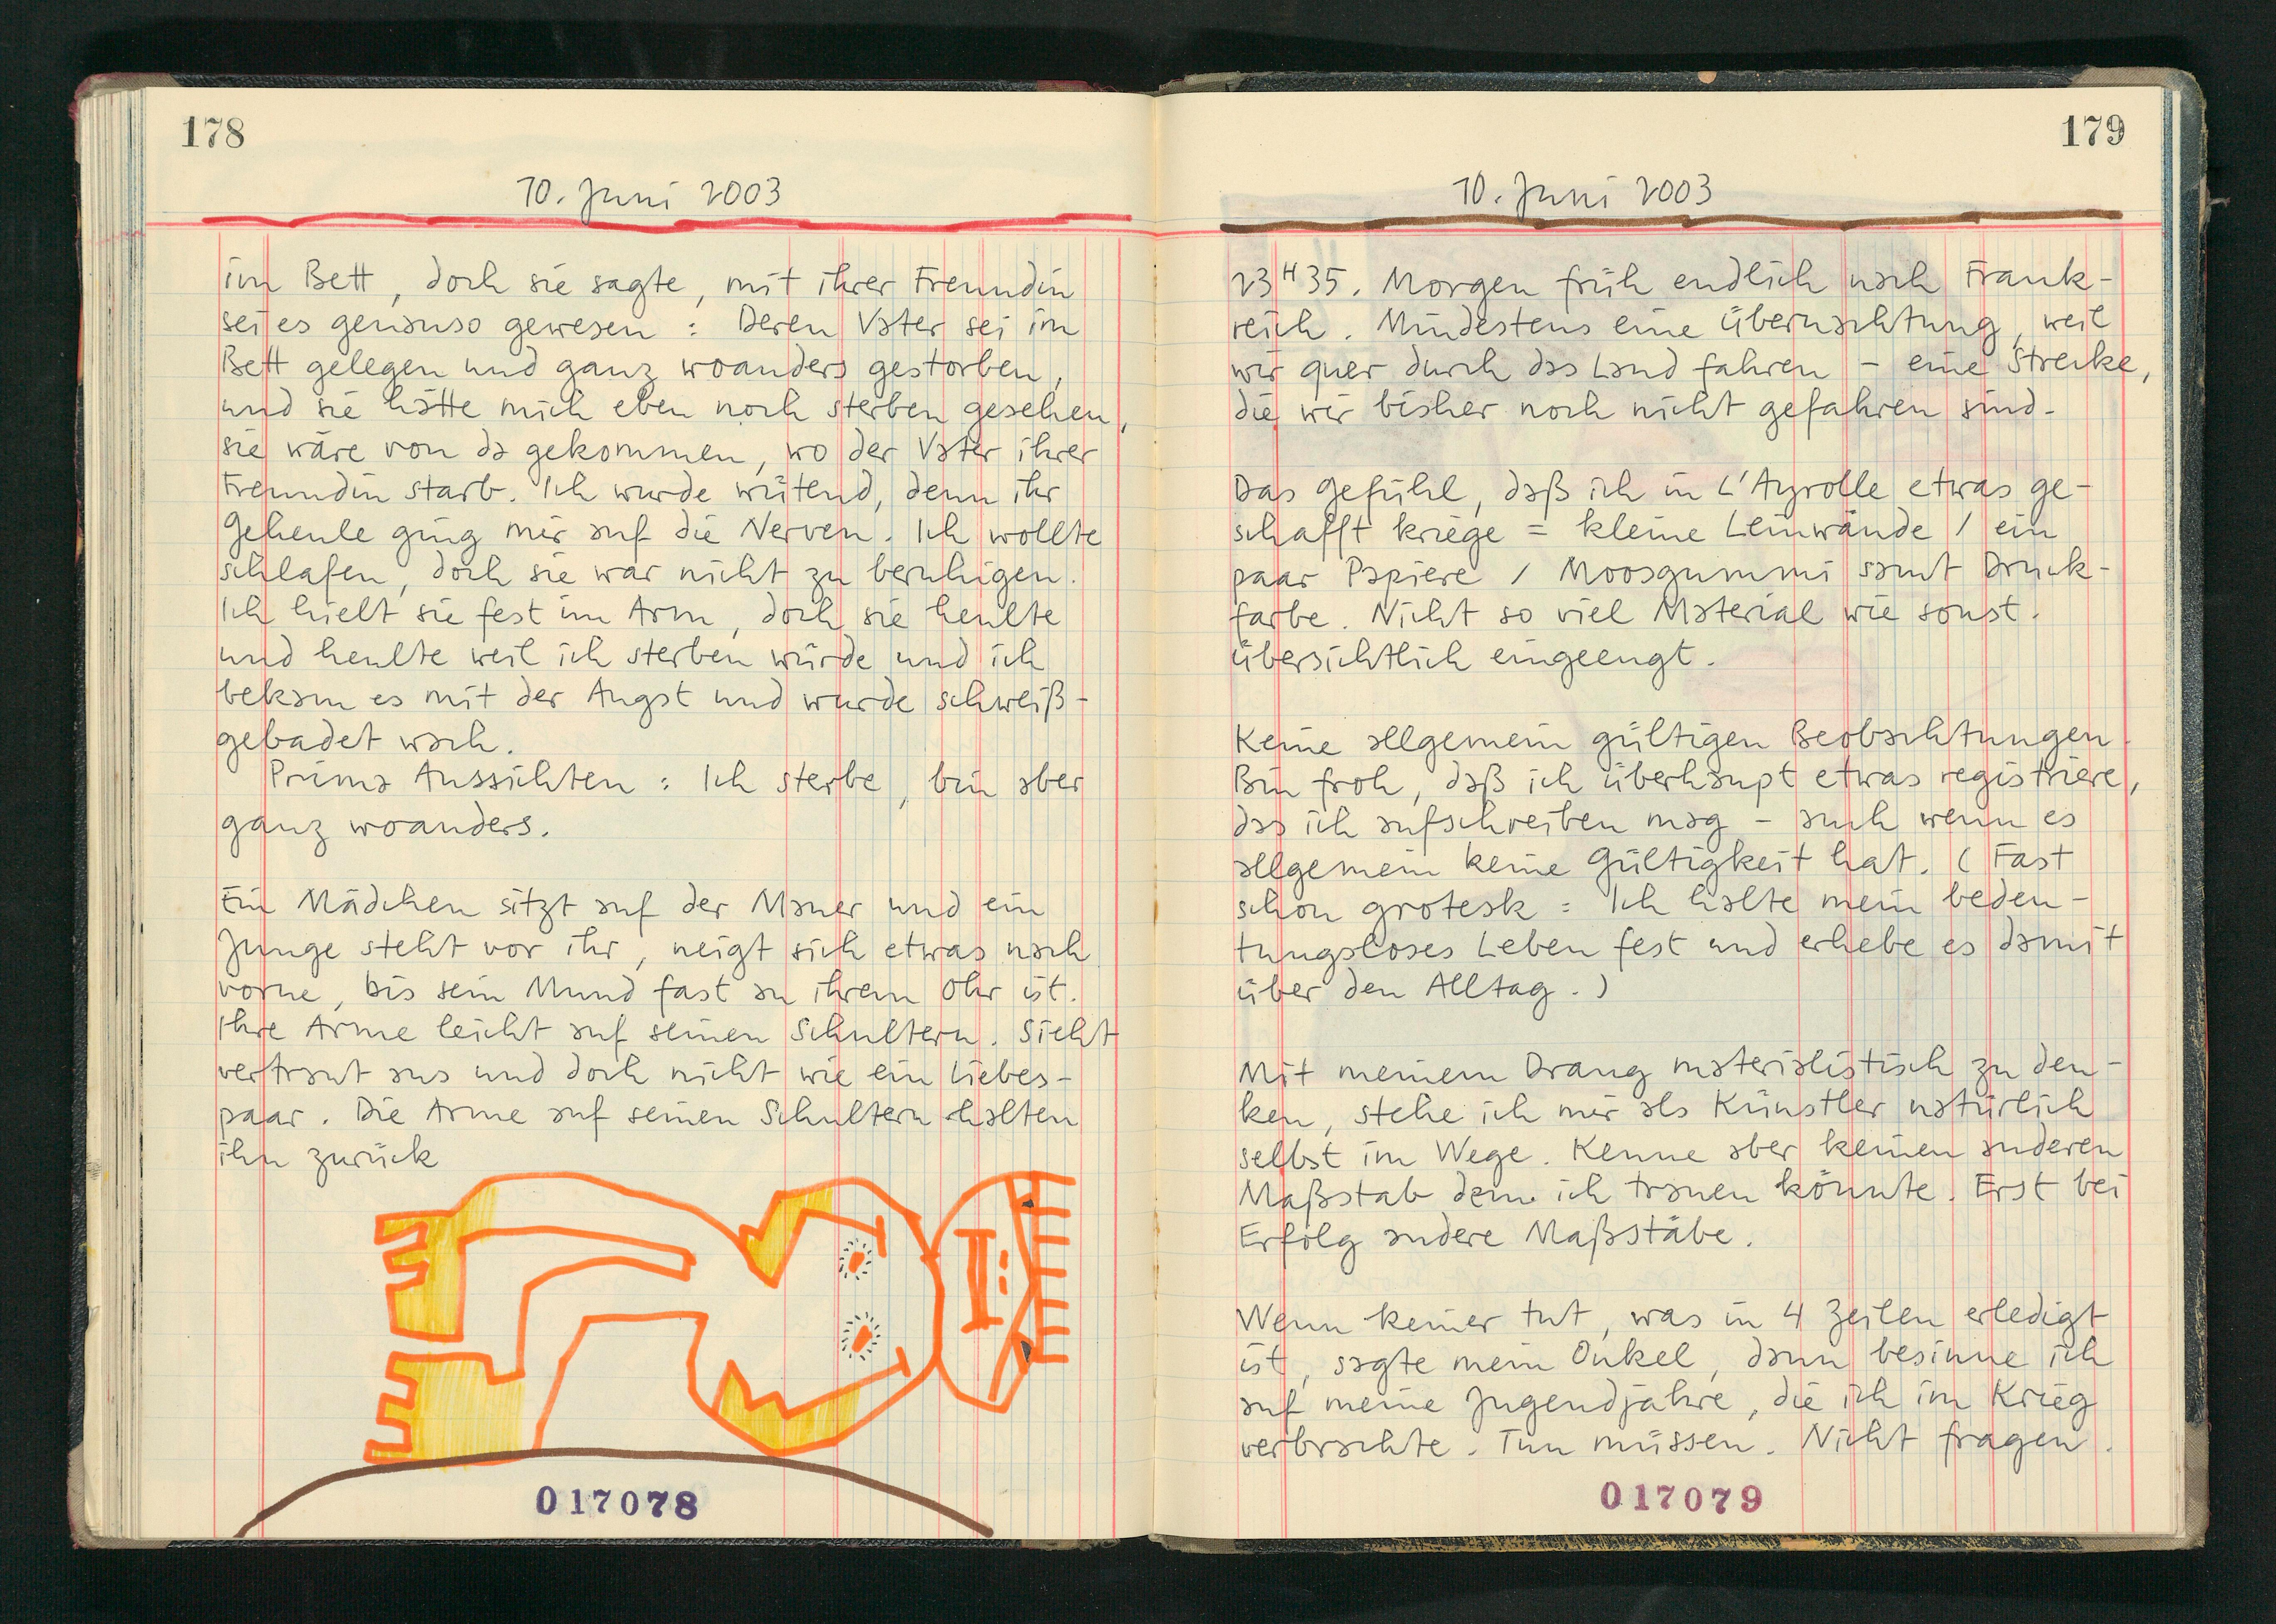 178
10. Juni 2003
im Bett, doch sie sagte, mit ihrer Freundin
sei es genauso gewesen: Deren Vater sei im
Bett gelegen und ganz woanders gestorben,
und sie hätte mich eben noch sterben gesehen,
sie wäre von da gekommen, wo der Vater ihrer
Freundin starb. Ich wurde wütend, denn ihr
Geheule ging mir auf die Nerven. Ich wollte
schlafen, doch sie war nicht zu beruhigen.
Ich hielt sie fest im Arm, doch sie heulte
und heulte weil ich sterben würde und ich
bekam es mit der Angst und wurde schweiß-
gebadet wach.
Prima Aussichten: Ich sterbe, bin aber
ganz woanders.
Ein Mädchen sitzt auf der Mauer und ein
Junge steht vor ihr, neigt sich etwas nach
vorne, bis sein Mund fast an ihrem Ohr ist.
Ihre Arme leicht auf seinen Schultern. Sieht
vertraut aus und doch nicht wie ein Liebes-
paar. Die Arme auf seinen Schultern halten
ihn zurück
017078
179
10. Juni 2003
23H35. Morgen früh endlich nach Frank-
reich. Mindestens eine Übernachtung, weil
wir quer durch das Land fahren - eine Strecke,
die wir bisher noch nicht gefahren sind.
Das Gefühl, daß ich in L'Ayrolle etwas ge-
schafft kriege = kleine Leinwände / ein
paar Papiere / Moosgummi samt Druck-
farbe. Nicht so viel Material wie sonst.
Übersichtlich eingeengt.
Keine allgemein gültigen Beobachtungen.
Bin froh, daß ich überhaupt etwas registriere,
das ich aufschreiben mag - auch wenn es
allgemein keine Gültigkeit hat. (Fast
schon grotesk: Ich halte mein bedeu-
tungsloses Leben fest und erhebe es damit
über den Alltag.)
Mit meinem Drang materialistisch zu den-
ken, stehe ich mir als Künstler natürlich
selbst im Wege. Kenne aber keinen anderen
Maßstab dem ich trauen könnte. Erst bei
Erfolg andere Maßstäbe.
Wenn keiner tut, was in 4 Zeilen erledigt
ist, sagte mein Onkel, dann besinne ich
auf meine Jugendjahre, die ich im Krieg
verbrachte. Tun müssen. Nicht fragen.
017079